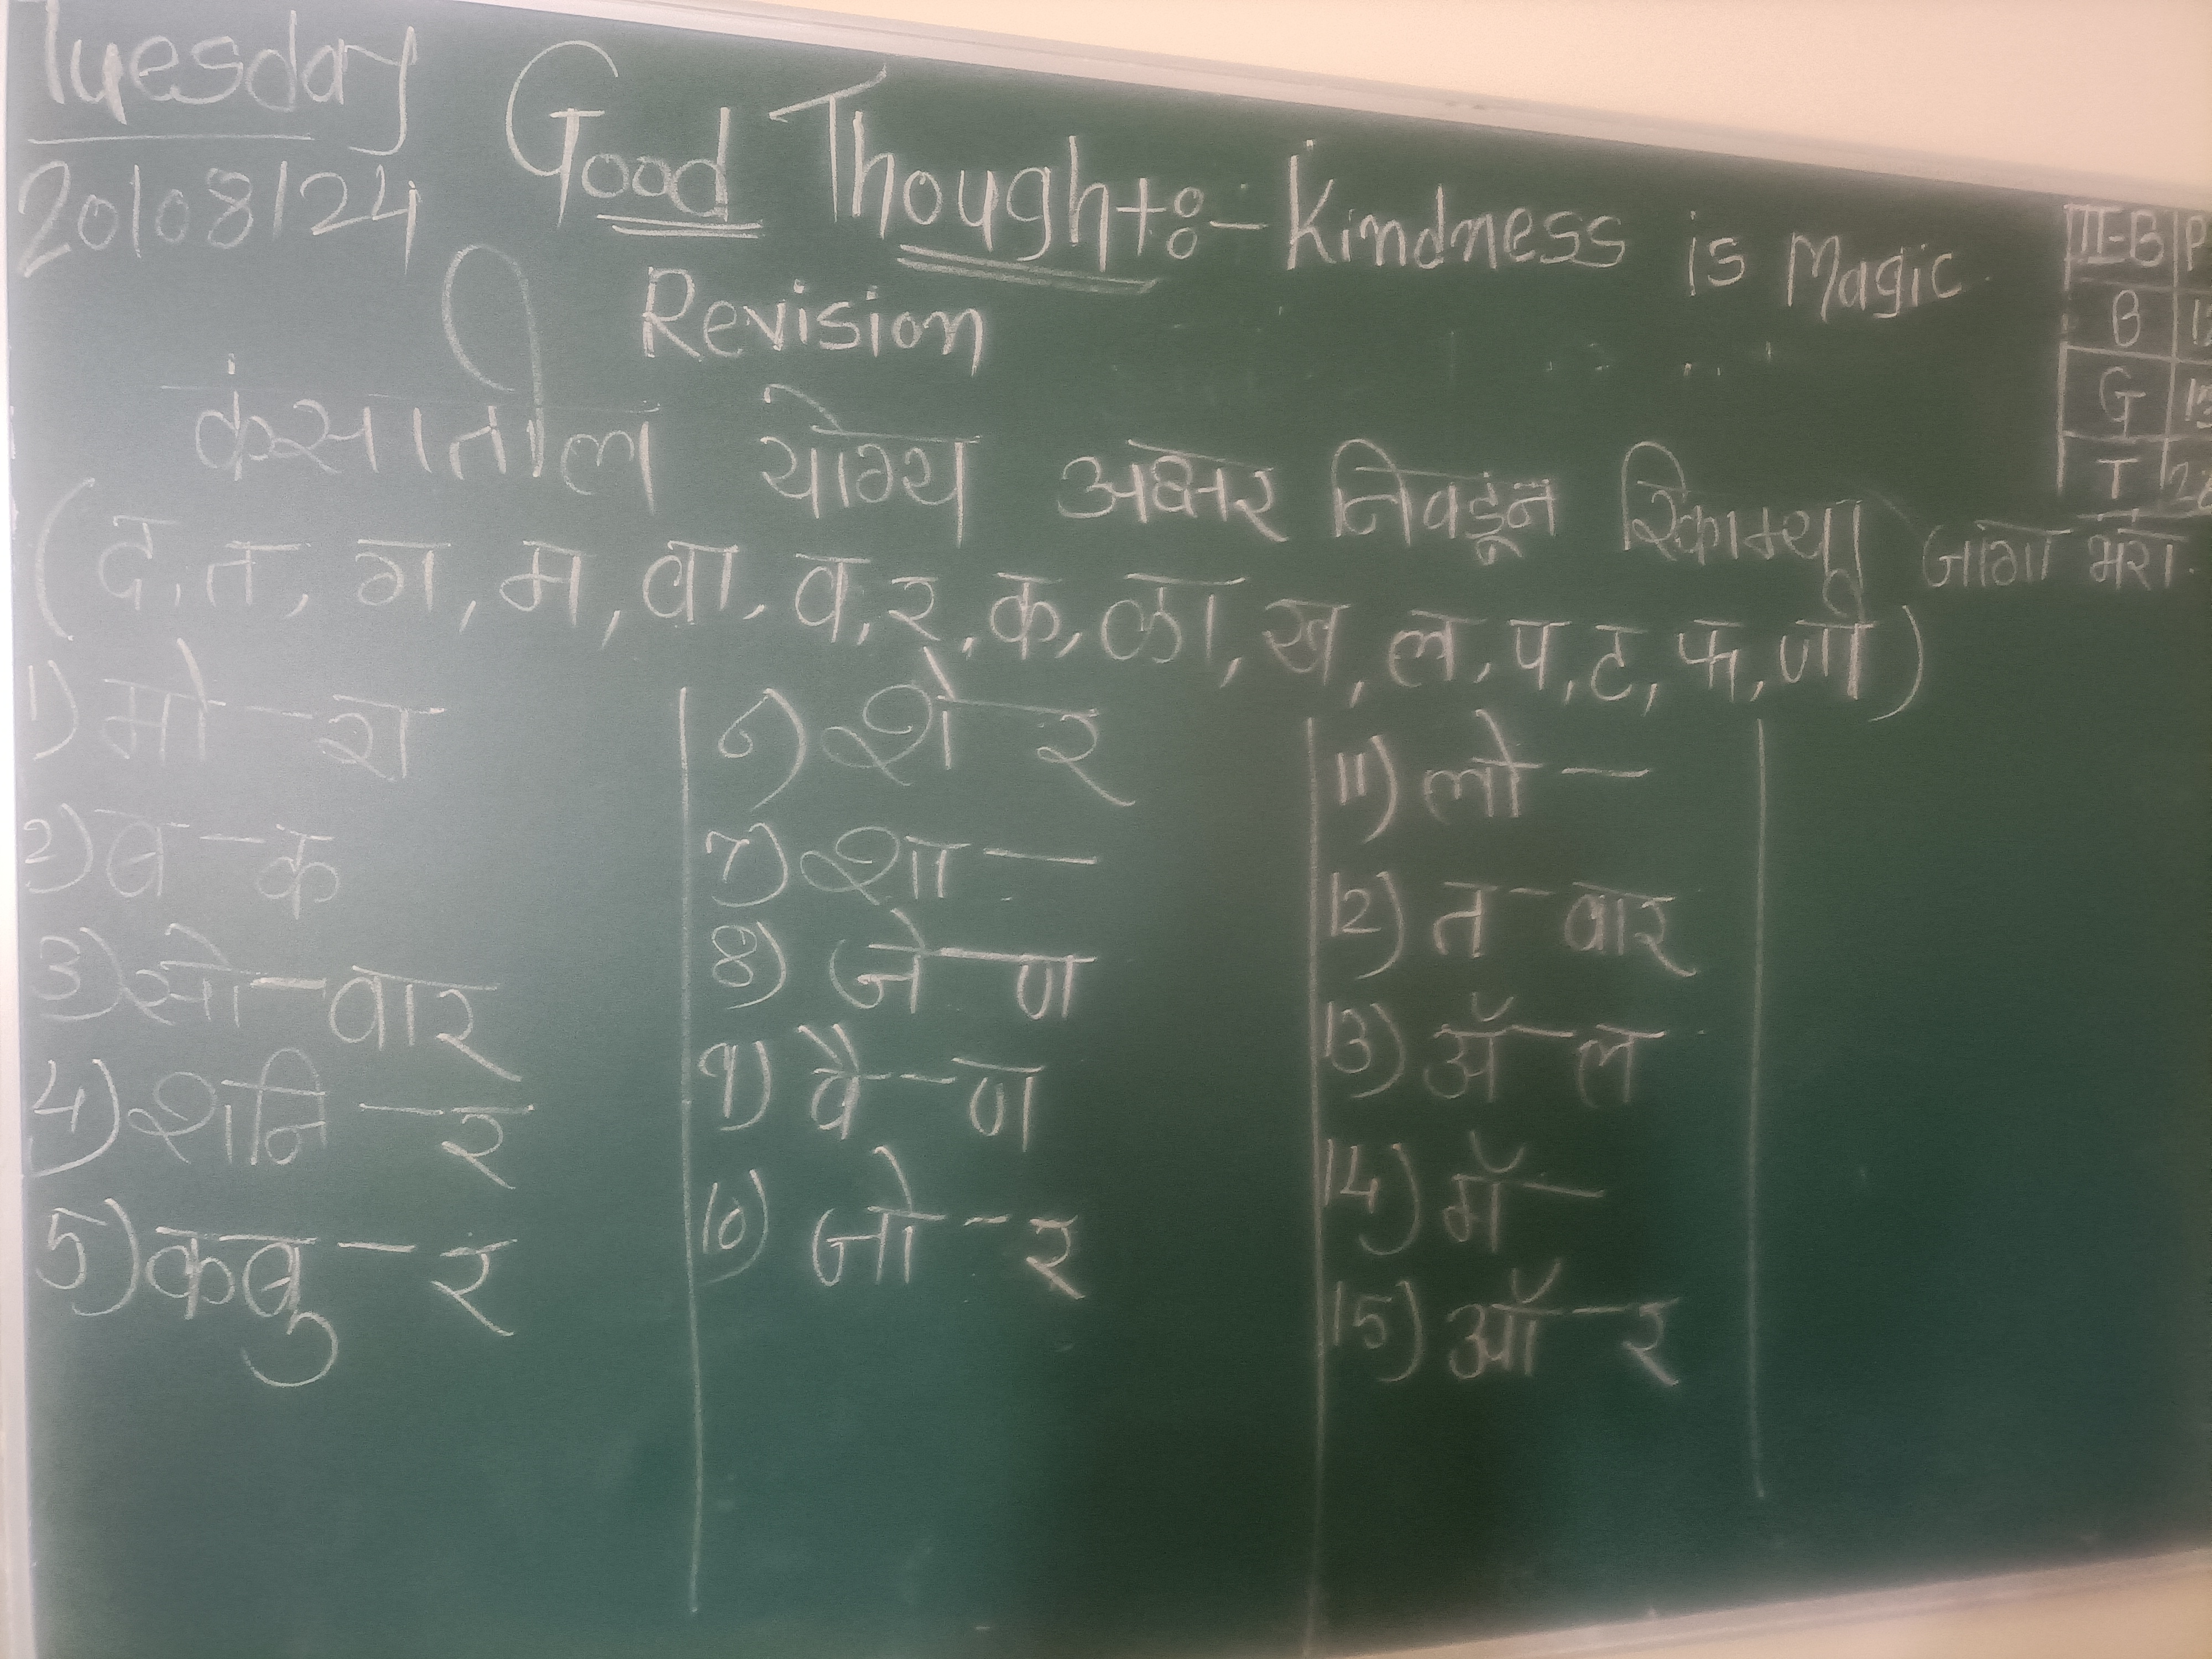 Tuesday
20/08/24
Good Thought:- Kindness is Magic
Revision
कंसातील योग्य अक्षर निवडून रिकाम्या जागा भरा.
(द, त, ग, म, वा, व, र, क, ळा, ख, ल, प, ट, फ, णी)
1) मो - रा
2) ब - क
3) सो - वार
4) शनि - र
5) कबु - र
6) शे - र
7) शा -
8) जे - ण
9) वै - ण
10) जो - र
11) लो -
12) त - वार
13) ॲ - ल
14) गॅ -
15) ऑ - र
III-B P
B
G
T